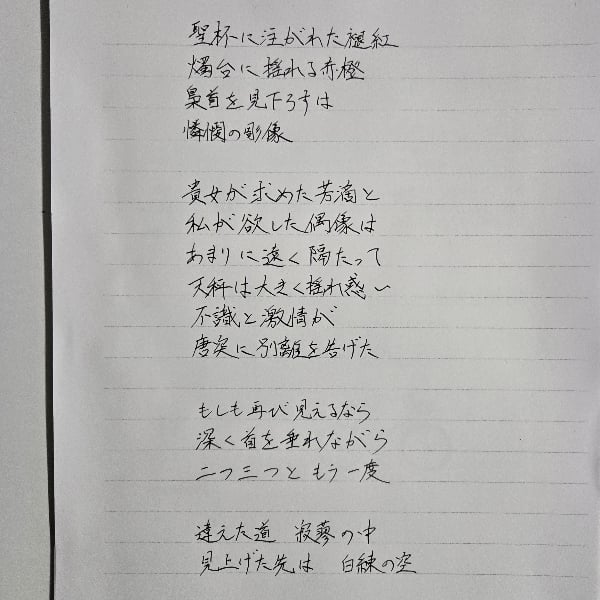 聖杯に注がれた褪紅
燭台に揺れる赤橙
梟首を見下ろすは
憐憫の彫像
貴女が求めた芳滴と
私が欲した偶像は
あまりに遠く隔たって
天秤は大きく揺れ惑い
不識と激情が
唐突に別離を告げた
もしも再び見えるなら
深く首を垂れながら
二つ三つと もう一度
違えた道 寂寥の中
見上げた先は 白練の空